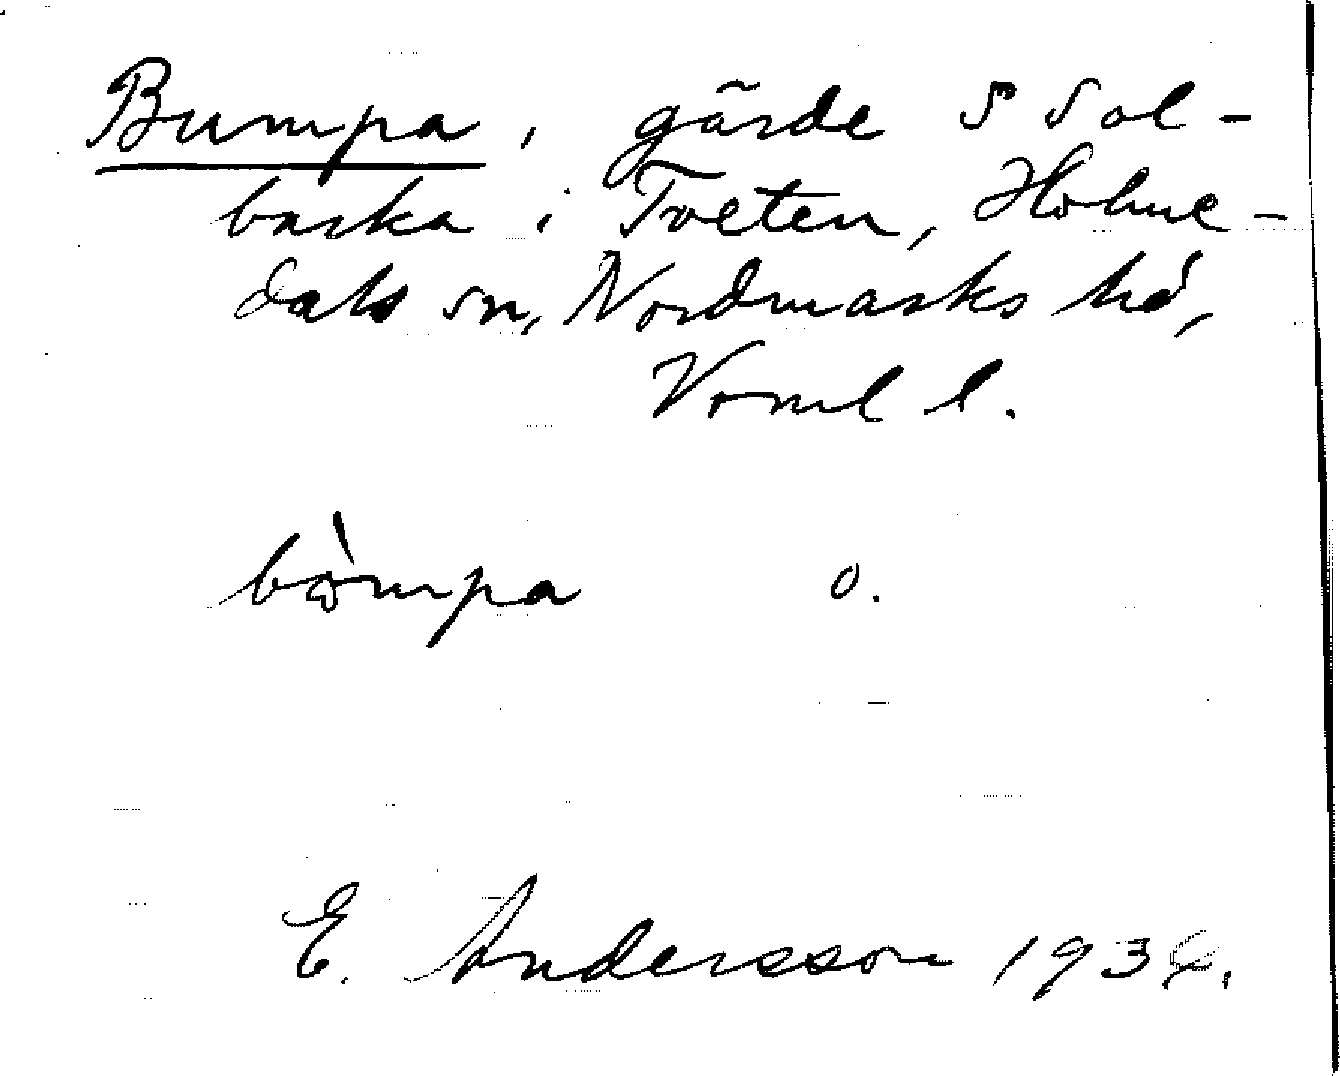 Bumpa, gärde S Sol-
backa i Tveten, Holme-
dals sn, Nordmarks hd,
Vrml l.
bòmpa o.
E. Andersson 1934.